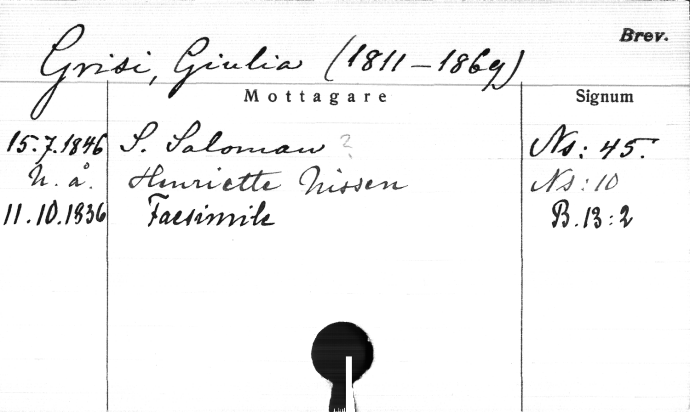 Brev.
Grisi, Giulia (1811–1869)
Mottagare Signum
15.7.1846 S. Saloman ? Ns: 45.
U. å. Henriette Nissen Ns: 10
11.10.1836 Facsimile B.13:2